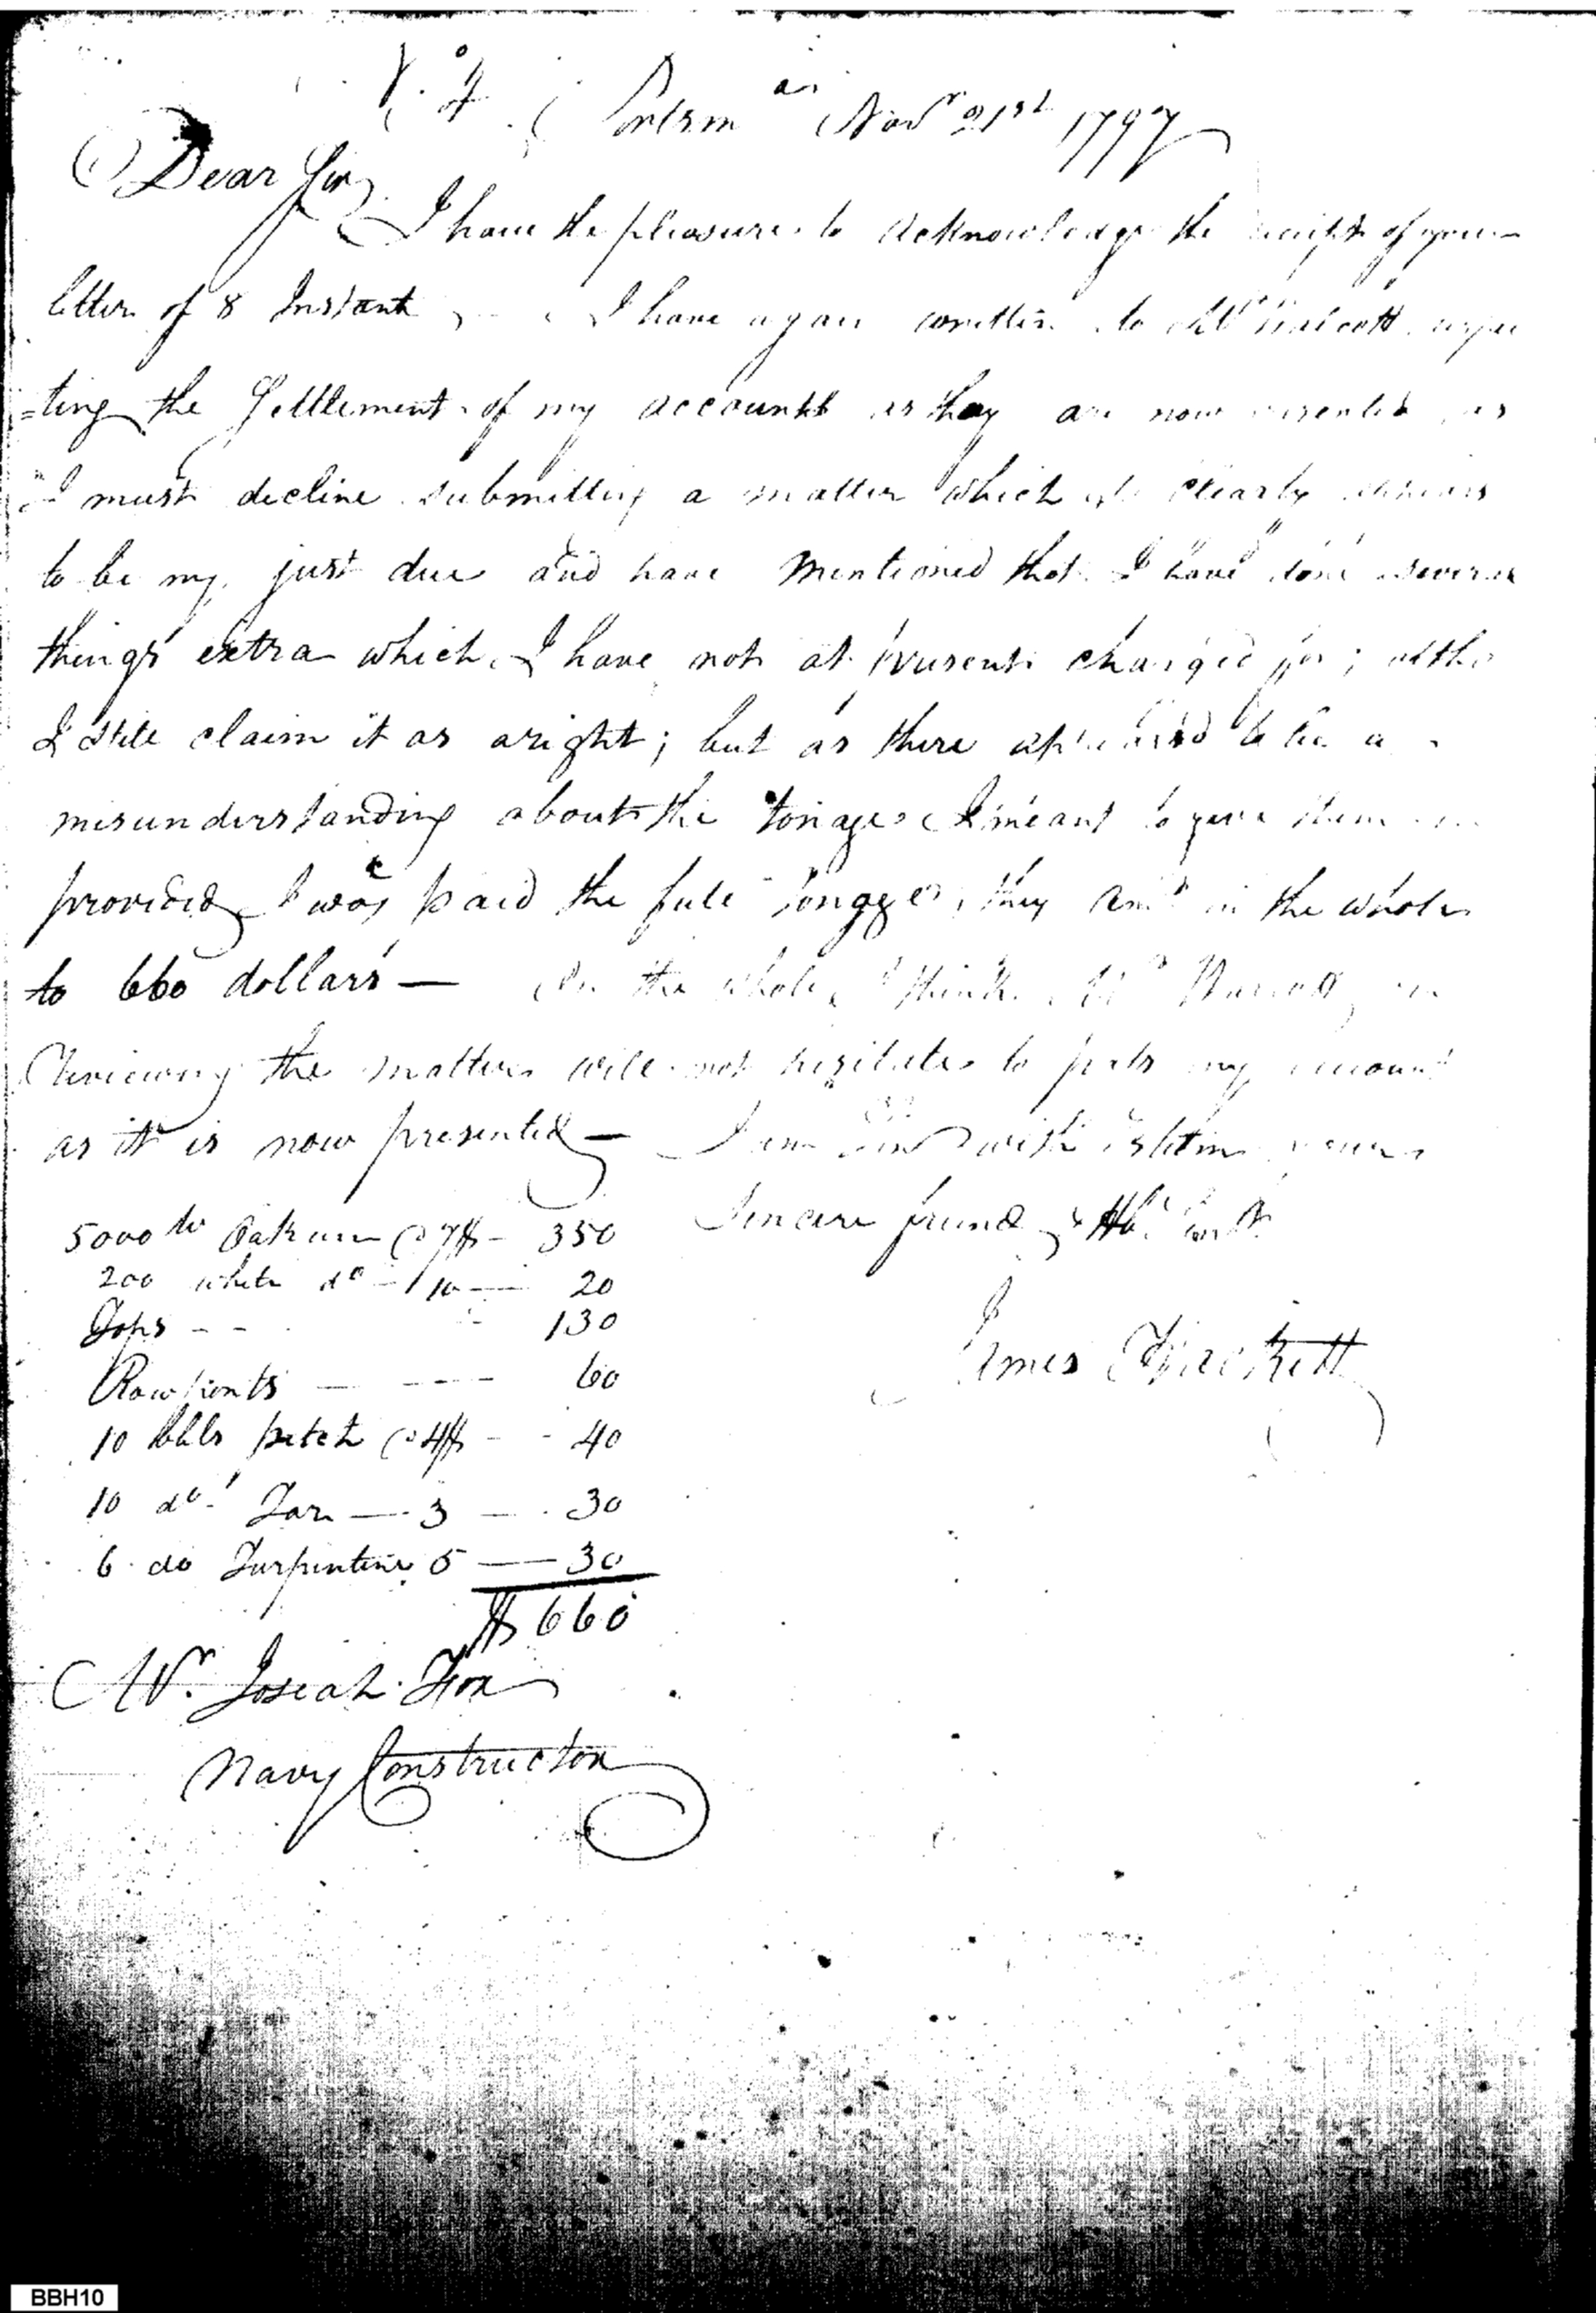 Portsm Novr 21st 1797
Dear Sir
I have the pleasure to acknowledge the of your
letter of 8 Instant I have again written to Mr
=ting the Settlement of my accounts as they are now as
I must decline submitting a matter which clearly
to be my just due and have mentioned that I have done
things extra which I have not at present charged for; altho
I still claim it as aright; but as there to be a
misunderstanding about the tonage I meant to give them
provided I was paid the full tonage, they in the whole
to 660 dollars —
On the whole I think Mr
Reviewing the matter will not hesitate to pass my account
as it is now presented — I am Sir with esteem your
Sincere friend &
James Hackett
5000 lb Oakum @ 7$ - 350
200 white do - 10 — 20
Tops - - 130
60
10 bbls pitch @ 4$ - - 40
10 do. Tar — 3 — 30
6 do Turpentine 5 — 30
$660
Mr. Josiah Fox
Navy Constructor
BBH10